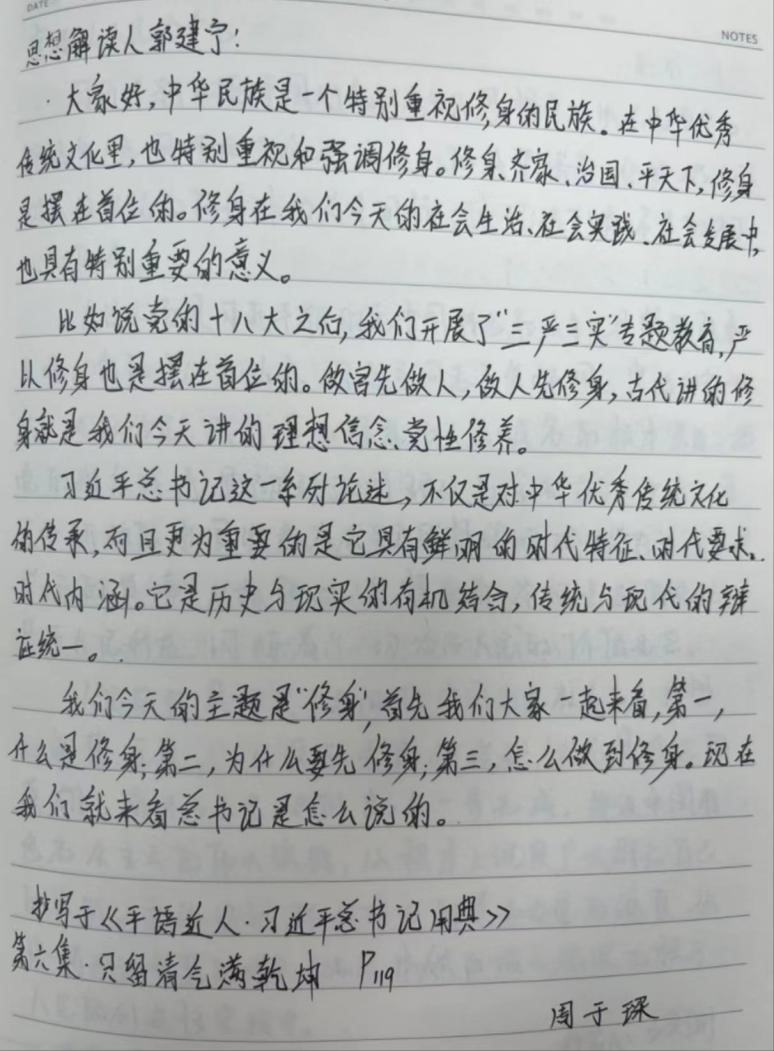 DATE
NOTES
思想解读人郭建宁！
大家好，中华民族是一个特别重视修身的民族。在中华优秀
传统文化里，也特别重视和强调修身。修身、齐家、治国、平天下，修身
是摆在首位的。修身在我们今天的社会生活、社会实践、社会发展中，
也具有特别重要的意义。
比如说党的十八大之后，我们开展了“三严三实”专题教育，严
以修身也是摆在首位的。做官先做人，做人先修身，古代讲的修
身就是我们今天讲的理想信念、党性修养。
习近平总书记这一系列论述，不仅是对中华优秀传统文化
的传承，而且更为重要的是它具有鲜明的时代特征、时代要求、
时代内涵。它是历史与现实的有机结合，传统与现代的辩
证统一。
我们今天的主题是“修身”，首先我们大家一起来看，第一，
什么是修身；第二，为什么要先修身；第三，怎么做到修身。现在
我们就来看总书记是怎么说的。
抄写于《平语近人·习近平总书记用典》
第六集·只留清气满乾坤 P119
周于琛